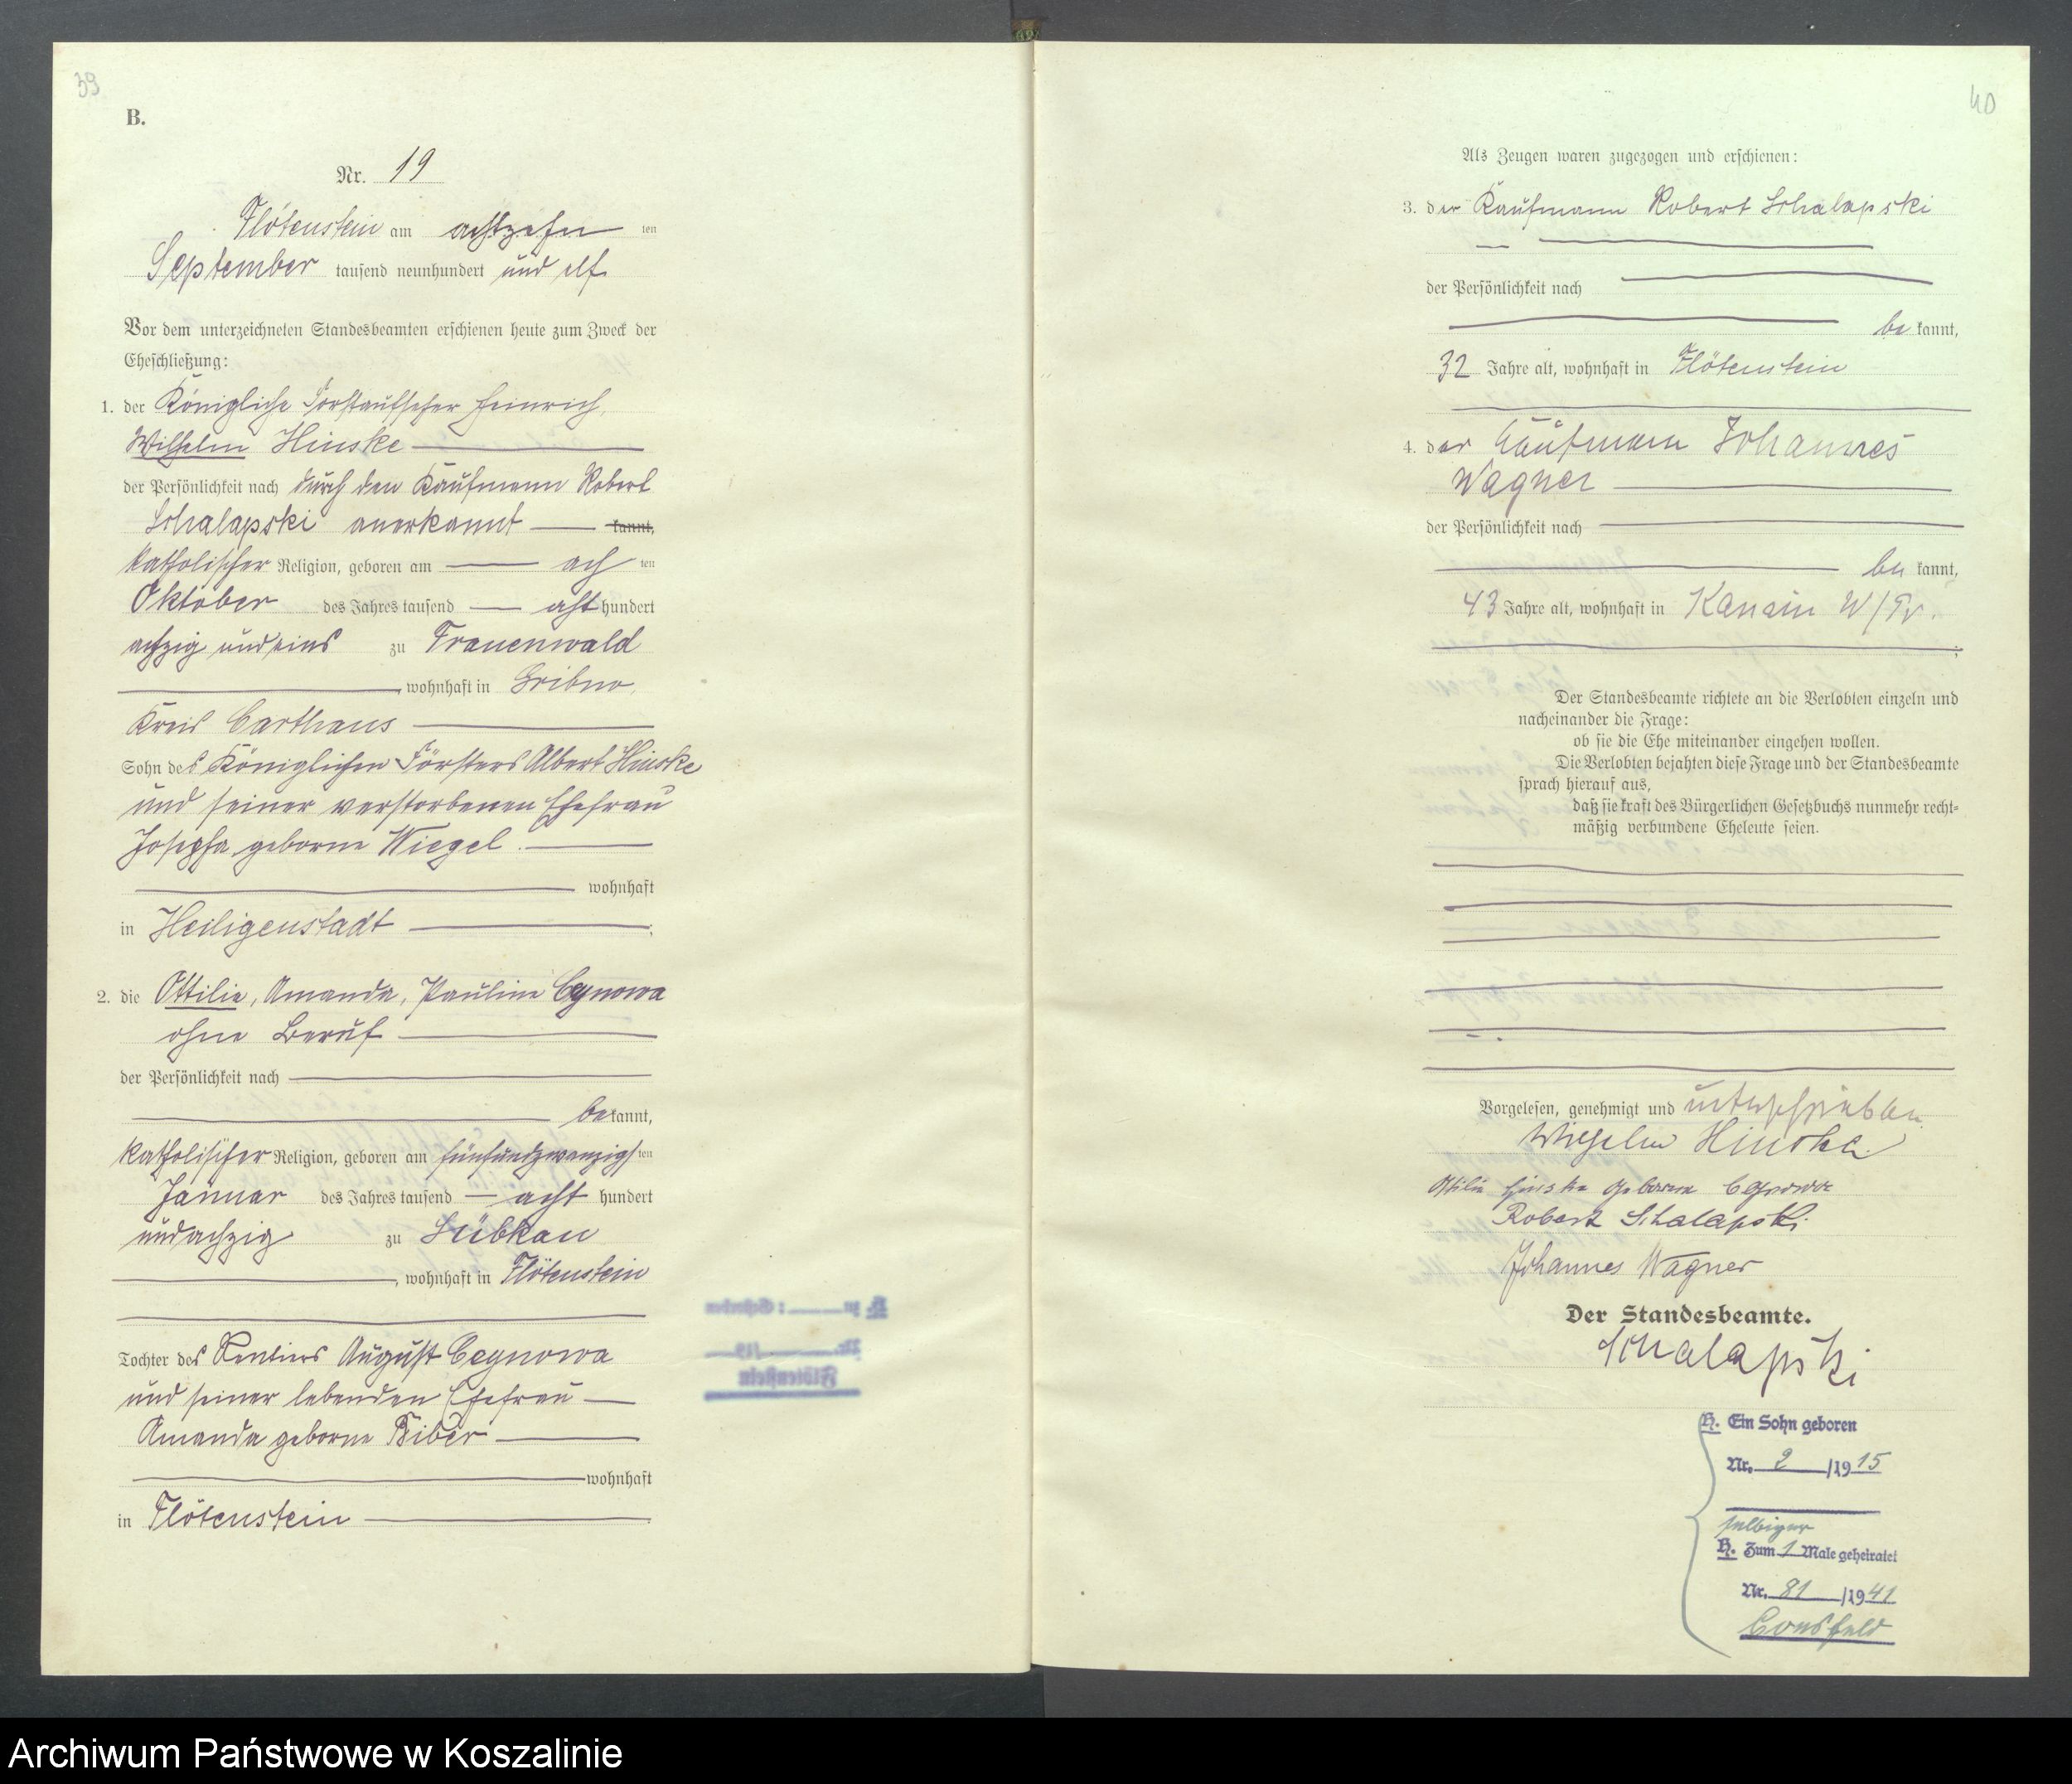 39
B.
Nr. 19
Flötenstein am achtzehn ten
September tausend neunhundert und elf
Vor dem unterzeichneten Standesbeamten erschienen heute zum Zweck der
Eheschließung:
1. der Königliche Forstaufseher Heinrich,
Wilhelm Hinske
der Persönlichkeit nach durch den Kaufmann Robert
Schalapski anerkannt kannt,
katholischer Religion, geboren am ach ten
Oktober des Jahres tausend acht hundert
achzig und eins zu Frauenwald
, wohnhaft in Gribno,
Kreis Carthaus
Sohn des Königlichen Försters Albert Hinske
und seiner verstorbenen Ehefrau
Josepha geborne Wiegel.
wohnhaft
in Heiligenstadt ;
2. die Ottilie, Amanda, Pauline Cegnowa
ohne Beruf
der Persönlichkeit nach
be kannt,
katholischer Religion, geboren am fünfundzwanzigs ten
Januar des Jahres tausend acht hundert
undachzig zu Lübkau
, wohnhaft in Flötenstein
Tochter des Rentiers August Cegnowa
und seiner lebenden Ehefrau
Amanda geborne Biber
wohnhaft
in Flötenstein .
40
Als Zeugen waren zugezogen und erschienen:
3. der Kaufmann Robert Schalapski
der Persönlichkeit nach
be kannt,
32 Jahre alt, wohnhaft in Flötenstein
4. der Kaufmann Johannes
Wagner
der Persönlichkeit nach
be kannt,
43 Jahre alt, wohnhaft in W/Pr.
;
Der Standesbeamte richtete an die Verlobten einzeln und
nacheinander die Frage:
ob sie die Ehe miteinander eingehen wollen.
Die Verlobten bejahten diese Frage und der Standesbeamte
sprach hierauf aus,
daß sie kraft des Bürgerlichen Gesetzbuchs nunmehr recht=
mäßig verbundene Eheleute seien.
Vorgelesen, genehmigt und unterschrieben
Wilhelm Hinske
Ottilie Hinske geborene Cegnowa
Robert Schalapski
Johannes Wagner
Der Standesbeamte.
Schalapski
H. Ein Sohn geboren
Nr. 2 /19 15
selbiger
H. Zum 1 Male geheiratet
Nr. 81 /19 41
Archiwum Państwowe w Koszalinie